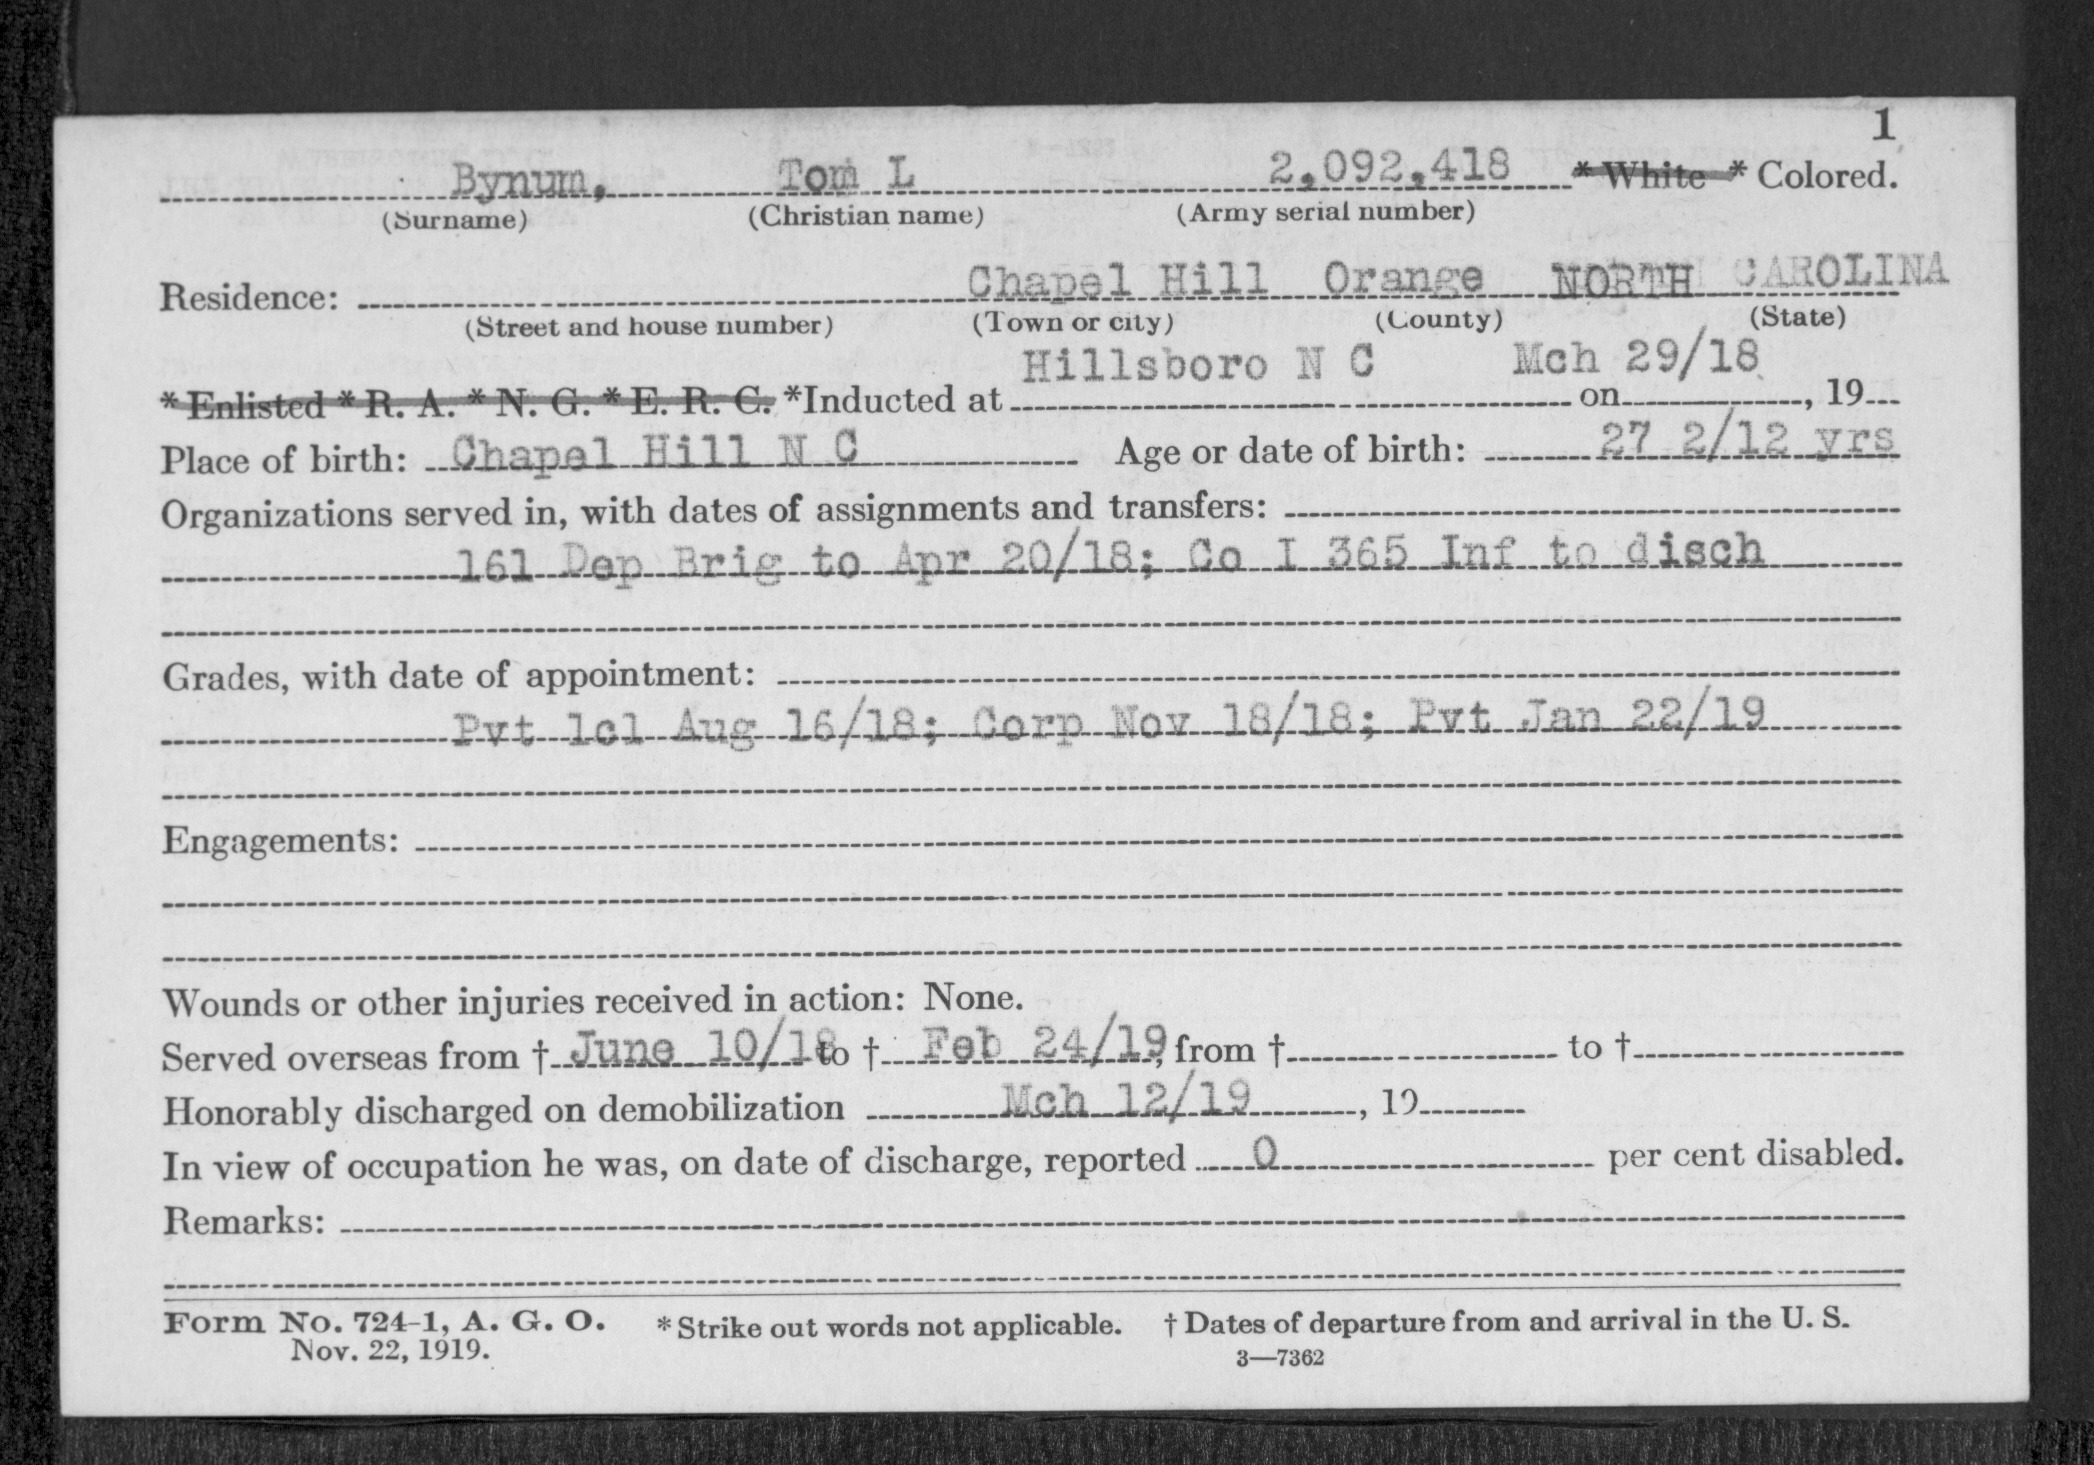 1
Bynum, Tom L 2,092,418 * White * Colored.
(Surname) (Christian name) (Army serial number)
Residence: Chapel Hill Orange NORTH CAROLINA
(Street and house number) (Town or city) (County) (State)
Hillsboro N C Mch 29/18
* Enlisted * R. A. * N. G. * E. R. C. *Inducted at on , 19
Place of birth: Chapel Hill N C Age or date of birth: 27 2/12 yrs
Organizations served in, with dates of assignments and transfers:
161 Dep Brig to Apr 20/18; Co I 365 Inf to disch
Grades, with date of appointment:
Pvt 1cl Aug 16/18; Corp Nov 18/18; Pvt Jan 22/19
Engagements:
Wounds or other injuries received in action: None.
Served overseas from † June 10/18 to † Feb 24/19, from † to †
Honorably discharged on demobilization Mch 12/19 , 19
In view of occupation he was, on date of discharge, reported 0 per cent disabled.
Remarks:
Form No. 724-1, A. G. O. * Strike out words not applicable. † Dates of departure from and arrival in the U. S.
Nov. 22, 1919. 3—7362